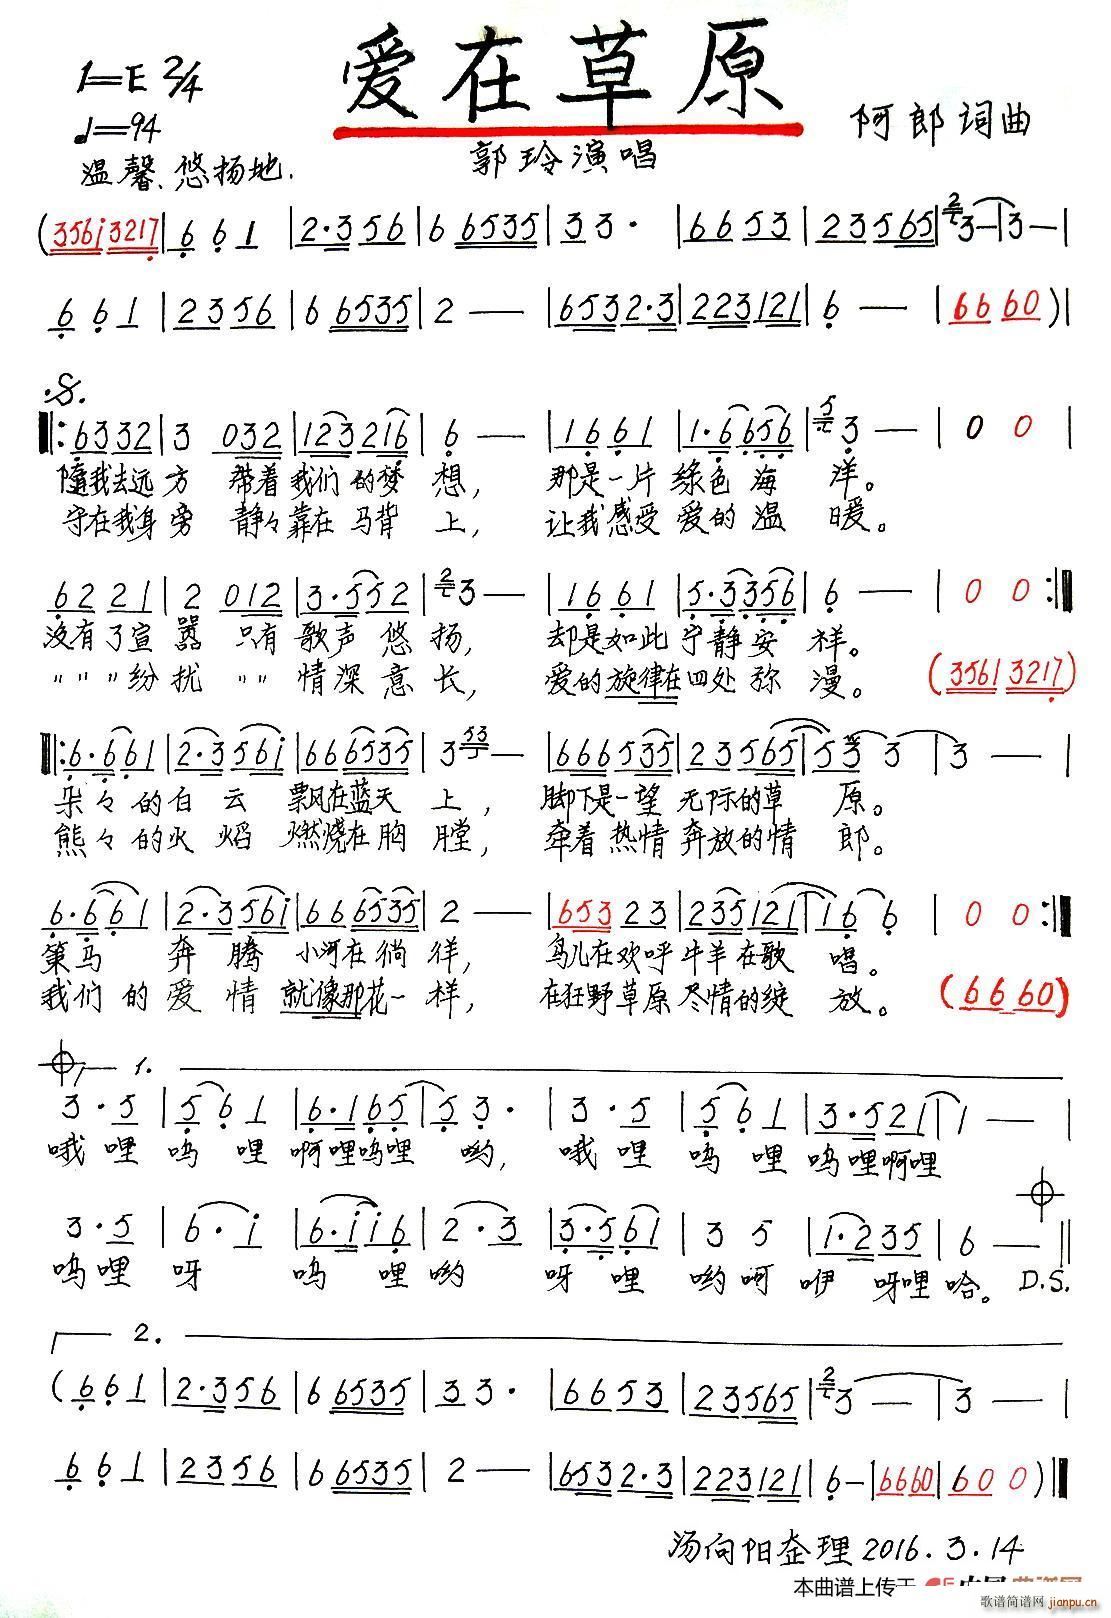 爱在草原
1=E 2/4
♩=94
阿郎词曲
郭玲演唱
温馨、悠扬地.
(3561 3217|6 6 1 |2·3 56|6 6535|33·|6653|23565|2 3-|3-|
6 6 1 |2356|6 6535|2 —|6532·3|223121|6 —|66 60)|
6332|3 032|123216|6 —|16 61|1·6656|5 3 —|0 0|
随我去远方 带着我们的梦 想, 那是一片绿色海 洋。
守在我身旁 静々靠在马背 上, 让我感受爱的温 暖。
62 21|2 012|3·552|2 3—|16 61|5·3356|6 —|0 0:||
没有了宣嚣 只有歌声悠 扬, 却是如此宁静安 祥。
〃〃〃纷扰 〃〃 情深意 长, 爱的旋律在四处弥 漫。 (3561 3217)
||:6·661|2·3561|666535|3 53 —|666535|235655|5 3 3|3 —|
朵々的白云 飘在蓝天 上, 脚下是一望无际的草 原。
熊々的火焰 燃烧在胸 膛, 牵着热情奔放的情 郎。
6·661|2·3561|666535|2 —|653 23|235121|1 6 6|0 0:||
策马 奔腾 小河在徜 徉, 鸟儿在欢呼牛羊在歌 唱。
我们的爱情 就像那花一 样, 在狂野草原尽情的绽 放。 (66 60)
1.
3·5|5 6 1|6·165|5 3·|3·5|5 6 1|3·521|1 —|
哦哩 呜哩 啊哩呜哩 哟, 哦哩 呜哩 呜哩啊哩
3·5|6·1|6·116|2·3|3·561|3 5|1·235|6 —||
呜哩 呀 呜 哩 哟 呀 哩 哟呵 咿 呀哩哈。 D.S.
2.
(6 6 1|2·356|6 6535|3 3·|6653|23565|2 3 —|3 —|
6 6 1|2356|6 6535|2 —|6532·3|223121|6-|6660|60 0)||
汤向阳整理 2016.3.14
本曲谱上传于
歌谱简谱网
jianpu.cn